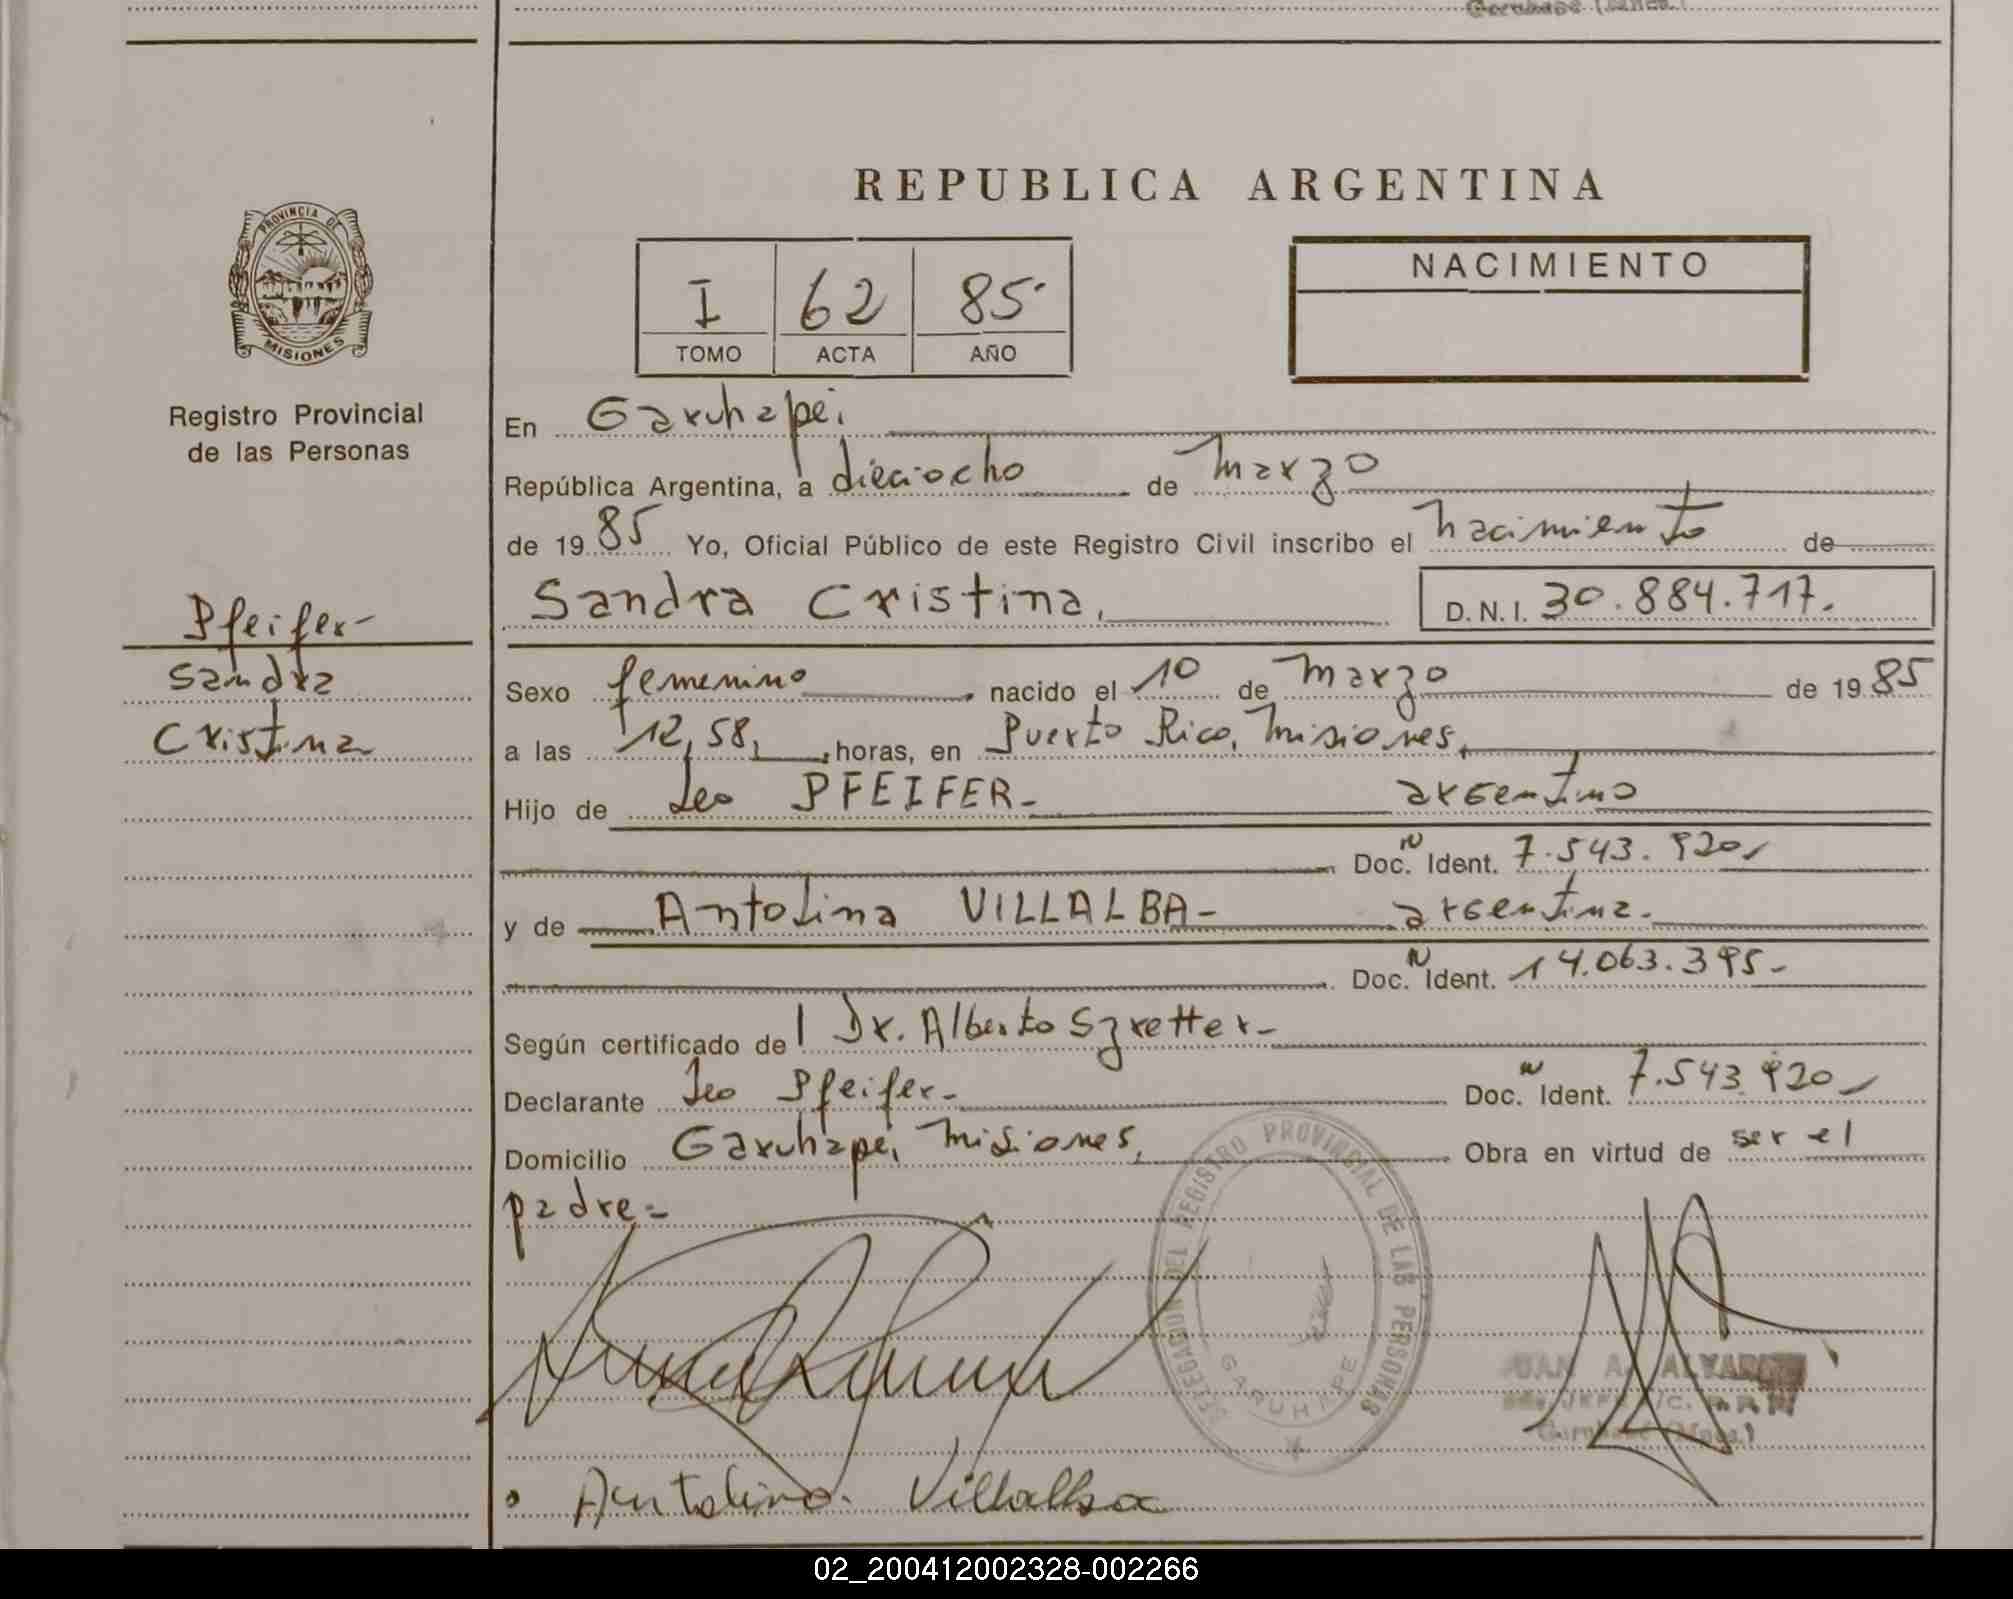 Garuhape (Mnes.)
REPUBLICA ARGENTINA
PROVINCIA DE
MISIONES
Registro Provincial
de las Personas
I 62 85.
TOMO ACTA AÑO
NACIMIENTO
En Garuhapé,
República Argentina, a dieciocho de marzo
de 19 85 Yo, Oficial Público de este Registro Civil inscribo el nacimiento de
Sandra Cristina, D.N.I. 30.884.717.
Pfeifer-
Sandra
Cristina
Sexo femenino nacido el 10 de marzo de 19 85
a las 12,58, horas, en Puerto Rico, Misiones,
Hijo de Leo PFEIFER- argentino
Doc. N Ident. 7.543.920-
y de Antolina VILLALBA- argentina.
Doc. N Ident. 14.063.395-
Según certificado de l Dr. Alberto Szretter-
Declarante Leo Pfeifer- Doc. N Ident. 7.543.920-
Domicilio Garuhapé, Misiones, Obra en virtud de ser el
padre=
DELEGACION DEL REGISTRO PROVINCIAL DE LAS PERSONAS
GARUHAPE
JUAN A. ALVAREZ
Garuhapé (Mnes.)
Antolina Villalba
02_200412002328-002266